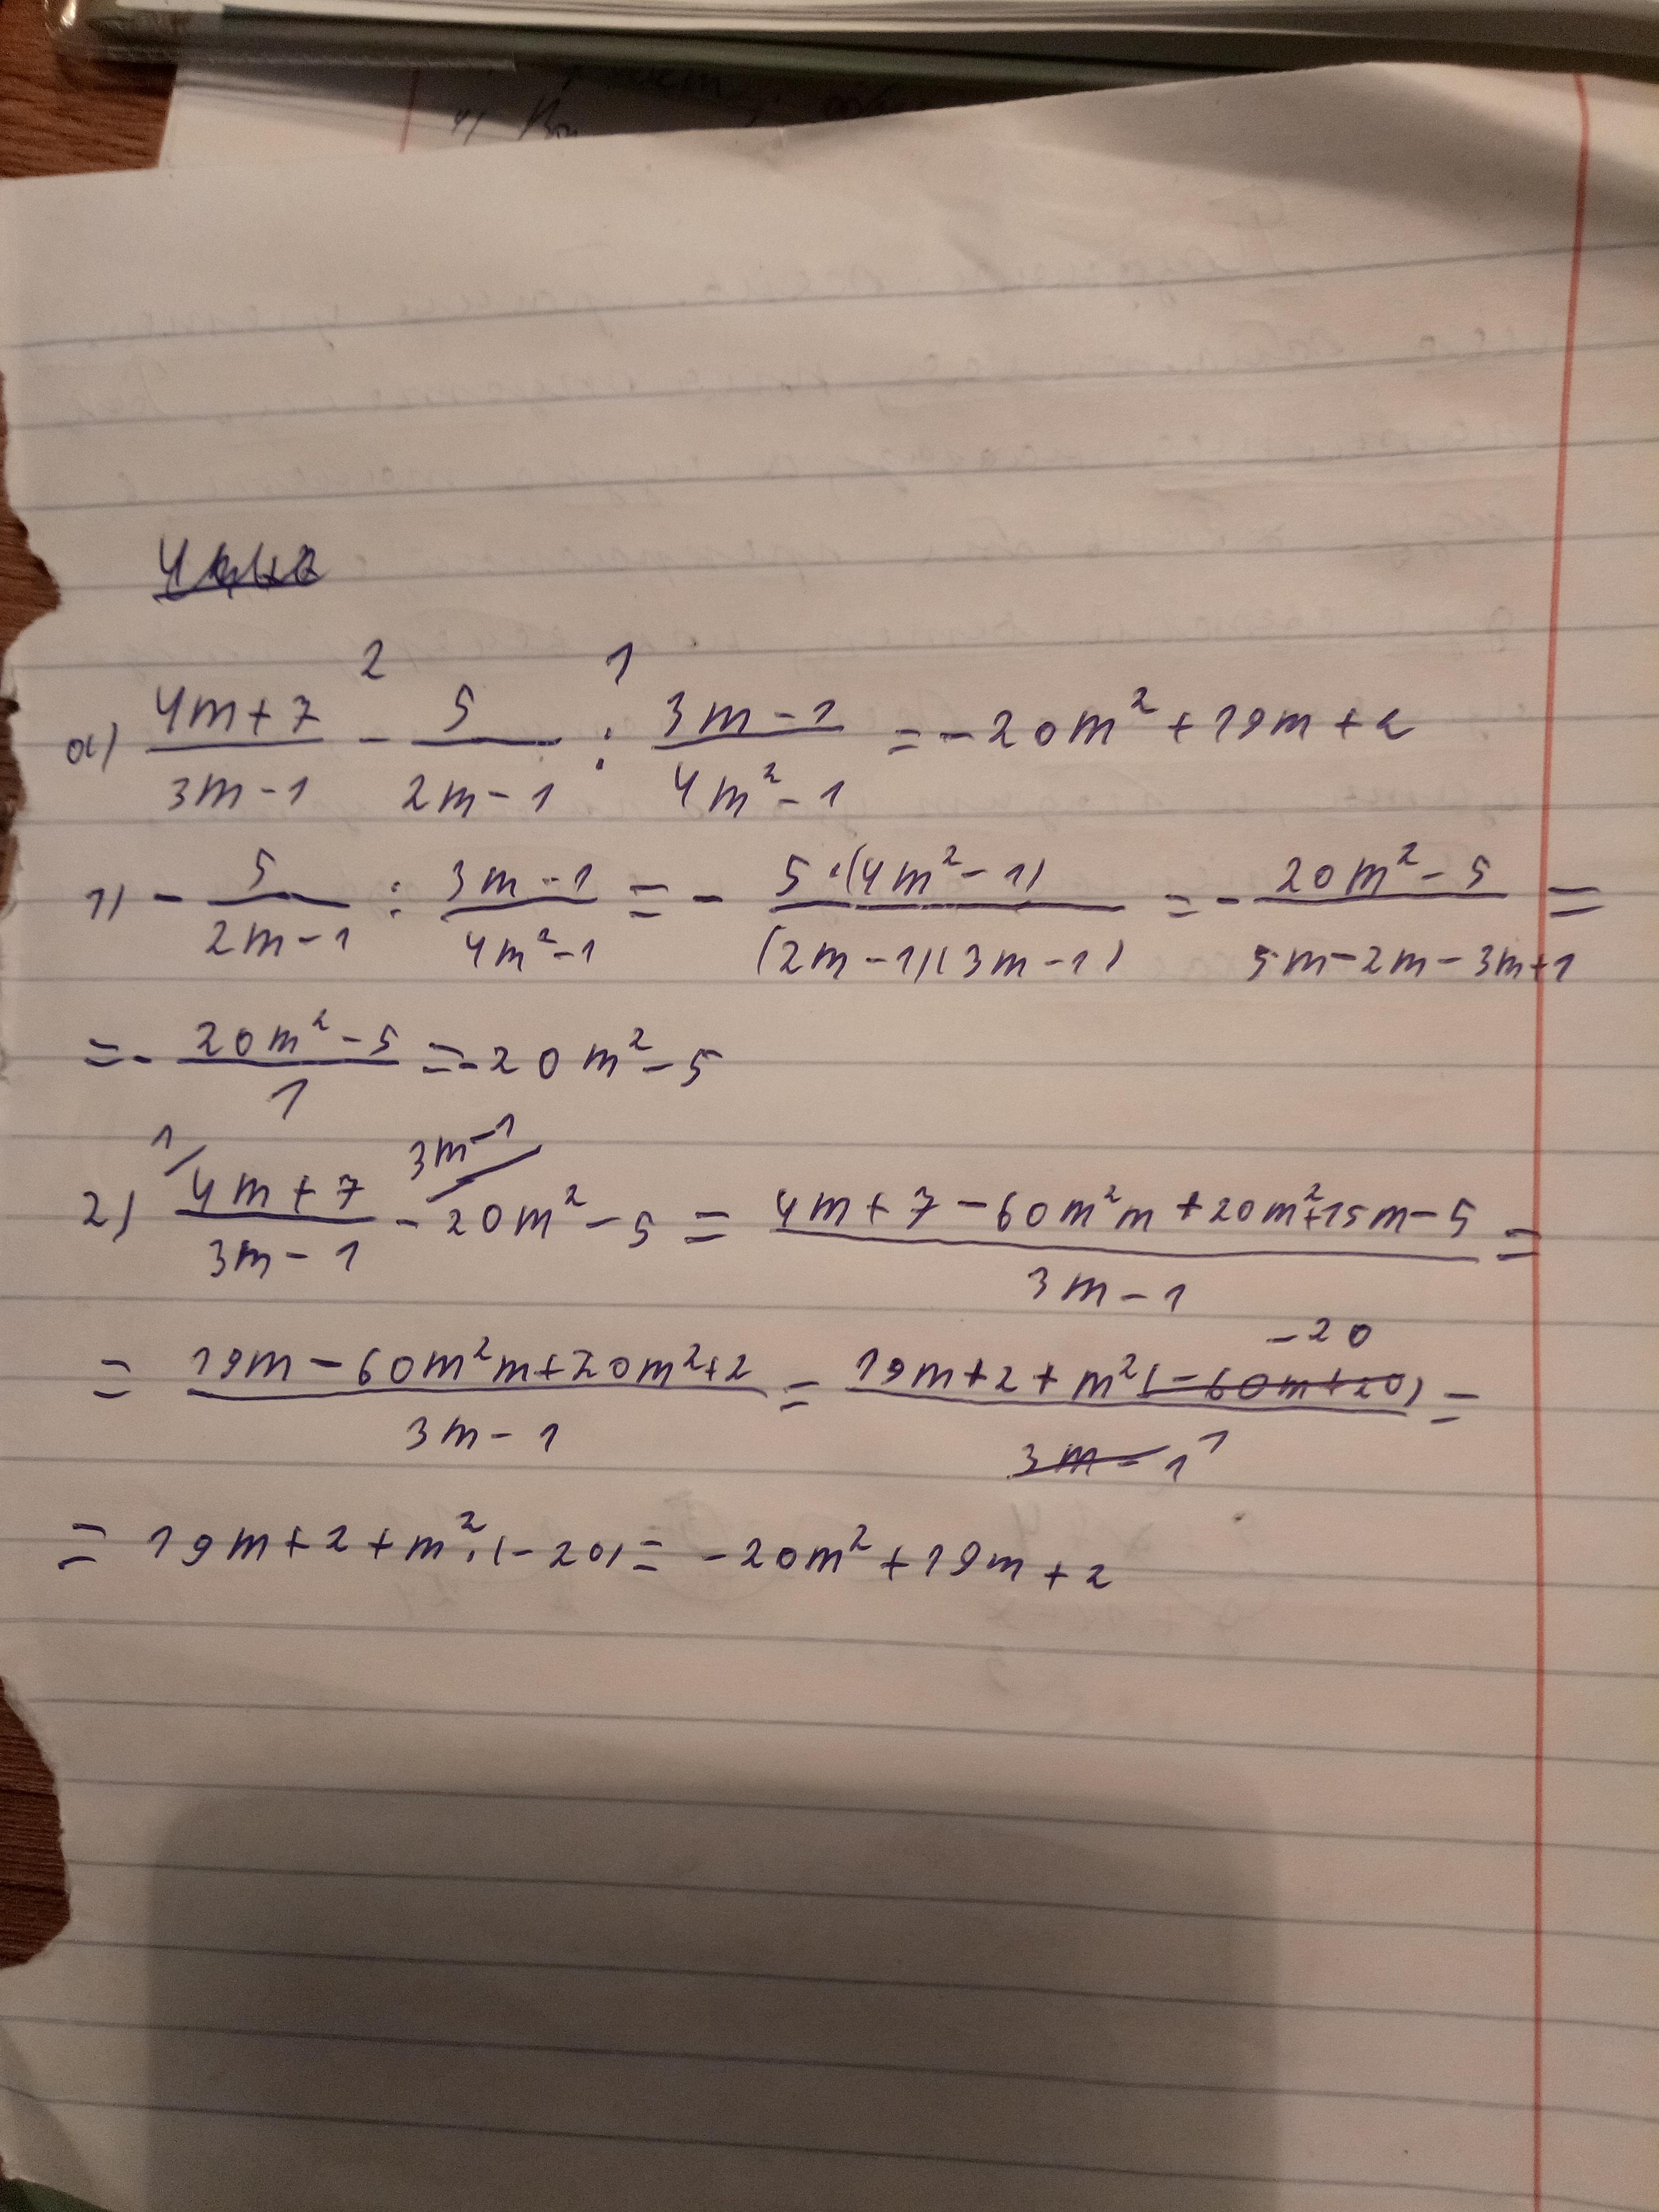 2 1
a) (4m+7)/(3m-1) - 5/(2m-1) : (3m-1)/(4m²-1) = -20m²+19m+2
1) - 5/(2m-1) : (3m-1)/(4m²-1) = - 5·(4m²-1)/(2m-1)(3m-1) = - (20m²-5)/(5m-2m-3m+1) =
= - (20m²-5)/1 = -20m²-5
1/ 3m-1/
2) (4m+7)/(3m-1) - 20m²-5 = (4m+7-60m²m+20m²+15m-5)/(3m-1) =
= (19m-60m²m+20m²+2)/(3m-1) = (19m+2+m²(-60m+20))/(3m-1) =
-20
1
= 19m+2+m²·(-20) = -20m²+19m+2